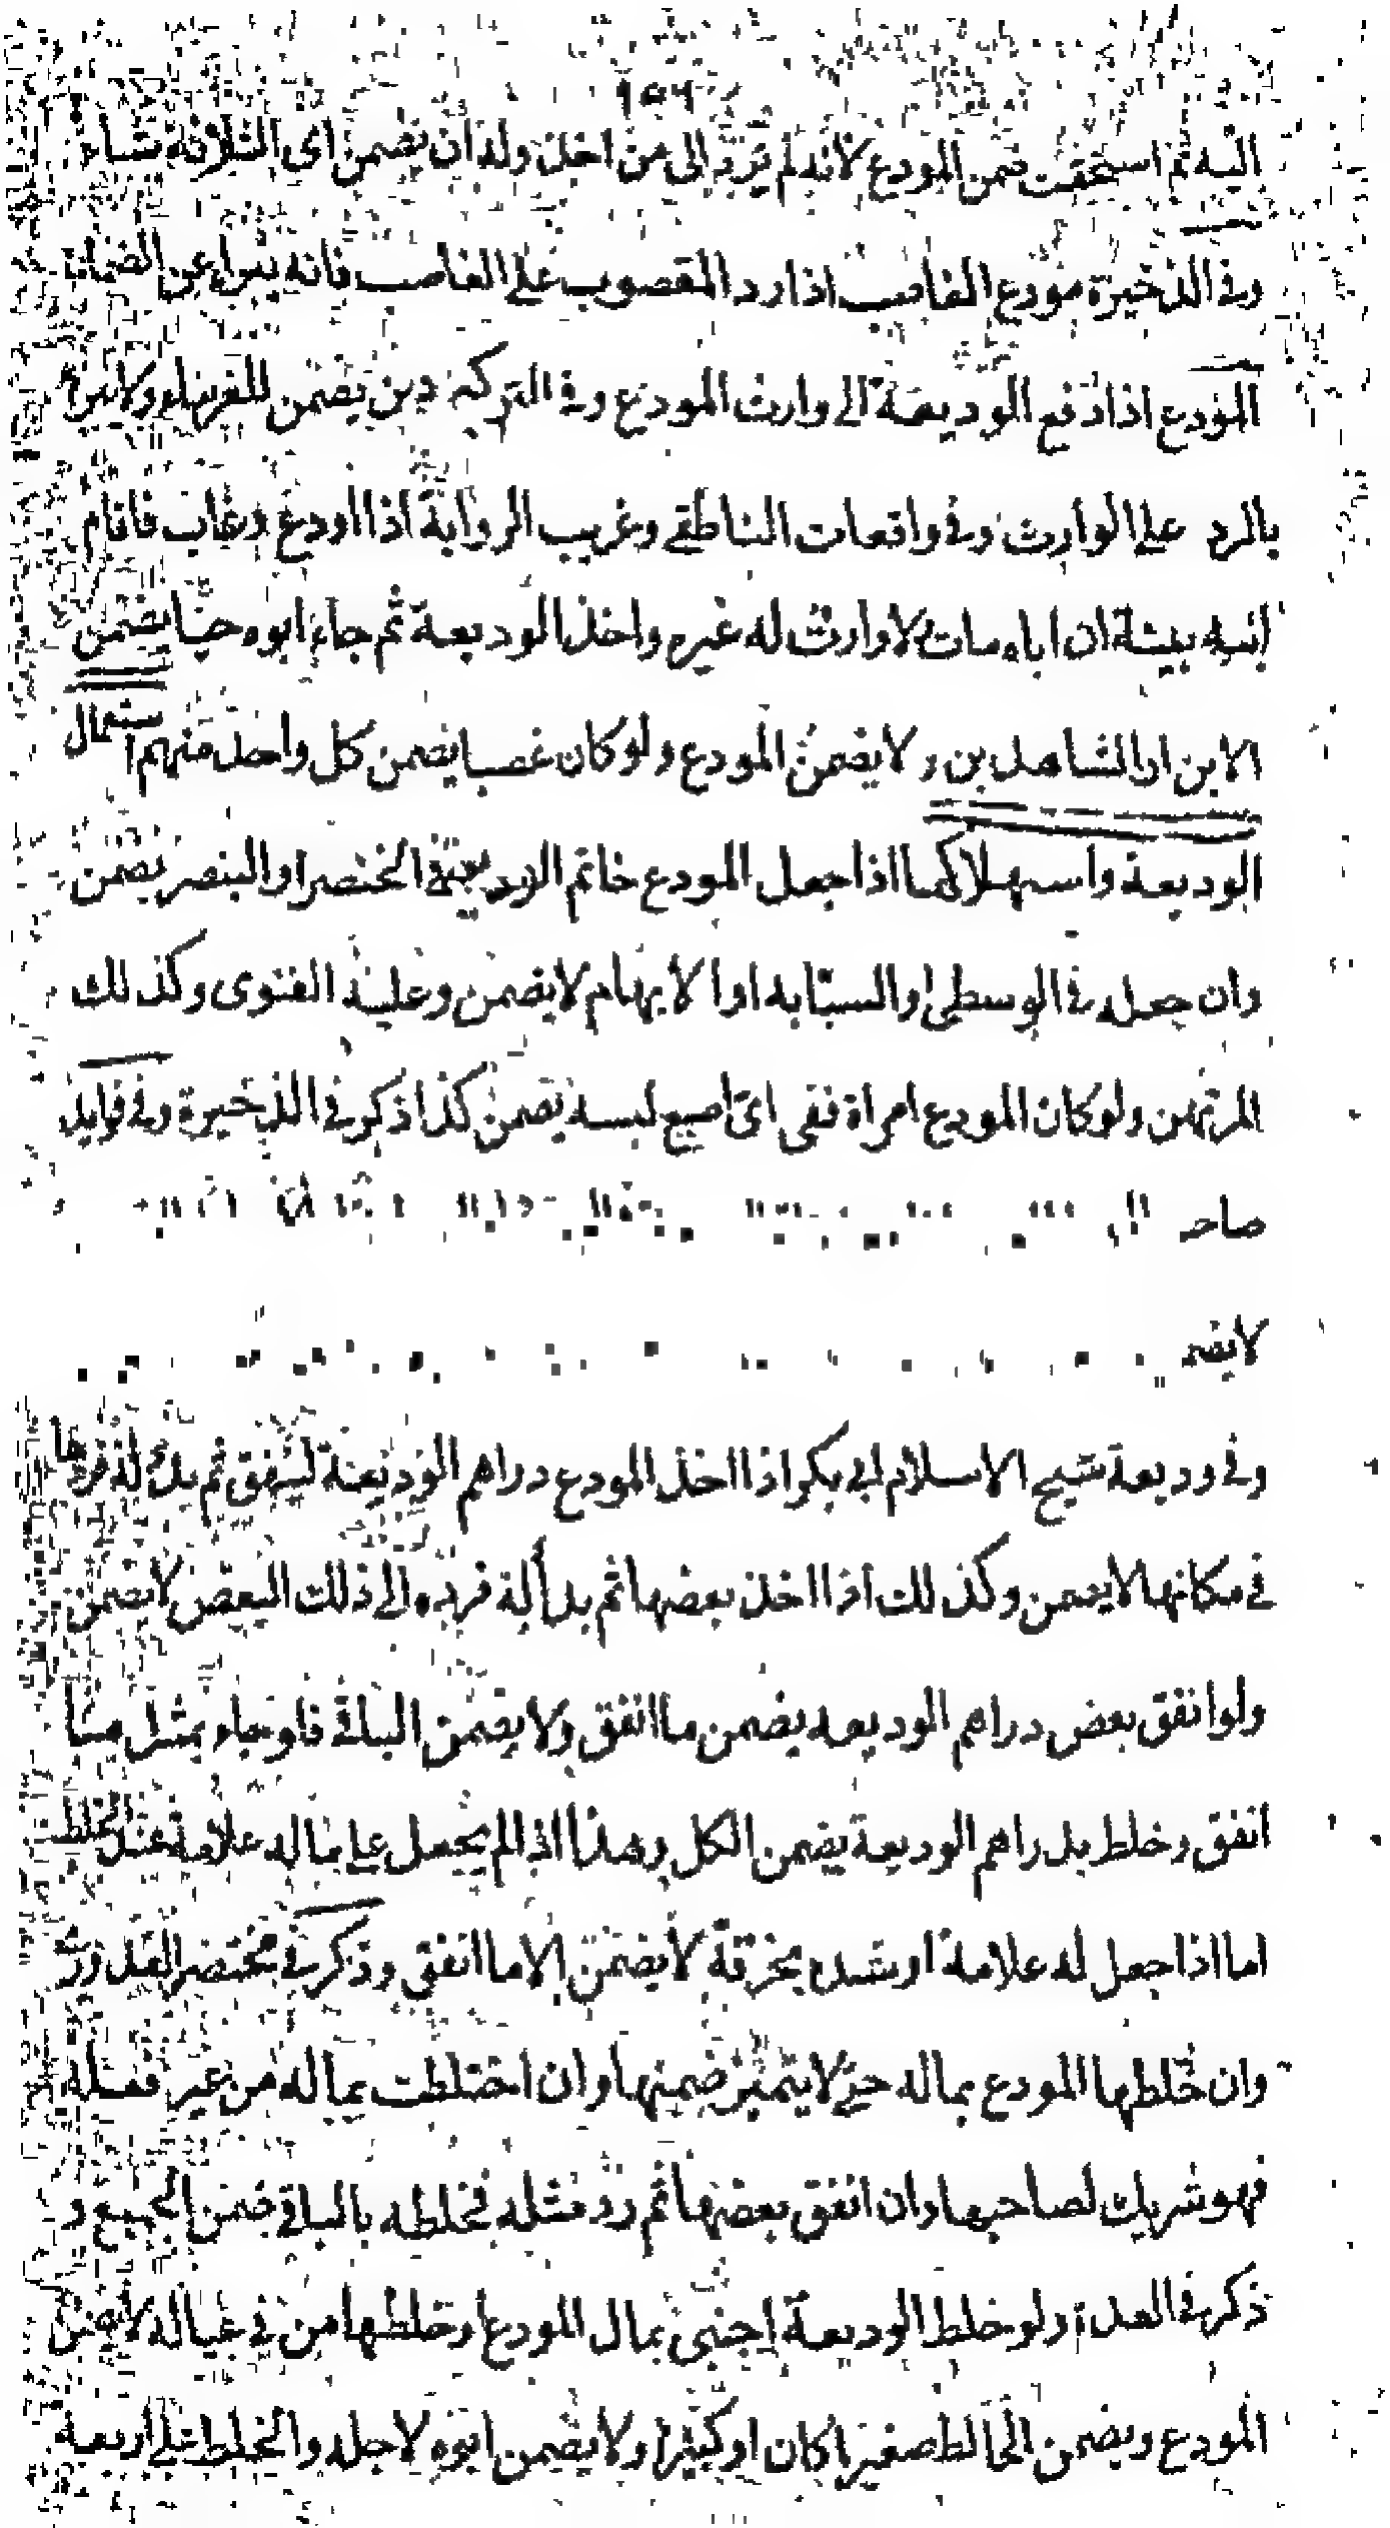 ١٥٦
اليه ثم استحقت ضمن المودع لانه لم يرد الى من اخذ وله ان يضمن اى الثلاثة شاء
وفى الذخيرة مودع الغاصب اذا رد المغصوب على الغاصب فانه يبراء عن الضمان
المودع اذا دفع الوديعة الى وارث المودع وفى التركة دين يضمن للغرماء ولا يبراء
بالرد على الوارث وفى واقعات الناطفى وغريب الرواية اذا اودع وغاب فاقام
ابنه بينة ان اباه مات لا وارث له غيره واخذ الوديعة ثم جاء ابوه حيا يضمن
الابن او الشاهدين ولا يضمن المودع ولو كان غصبا يضمن كل واحد منهم استعمال
الوديعة واستهلاكها اذا جعل المودع خاتم الوديعة فى الخنصر او البنصر يضمن
وان جعله فى الوسطى او السبابه او الابهام لا يضمن وعليه الفتوى وكذلك
المرتهن ولو كان المودع امراة ففى اى اصبع لبسه يضمن كذا ذكر فى الذخيرة وفى فوايد
صاحـ
لا يضمـ
وفى وديعة شيخ الاسلام ابى بكر اذا اخذ المودع دراهم الوديعة لينفق ثم بدا له فردها
فى مكانها لا يضمن وكذلك اذا اخذ بعضها ثم بدا له فرده الى ذلك البعض لا يضمن
ولو انفق بعض دراهم الوديعه يضمن ما انفق ولا يضمن الباقى فلو جاء بمثل ما
انفق وخلط بدراهم الوديعة يضمن الكل وهذا اذا لم يجعل على ماله علامة عند الخلط
اما اذا جعل له علامة او شده بخرقة لا يضمن الا ما انفق وذكر فى مختصر القدورى
وان خلطها المودع بماله حتى لا يتميز ضمنها وان اختلطت بماله من غير فعله
فهو شريك لصاحبها وان انفق بعضها ثم رد مثله فخلطه بالباقى ضمن الجميع و
ذكر فى العدة ولو خلط الوديعة اجنبى بمال المودع او خلطها من فى عياله لا يضمن
المودع ويضمن الخالط صغيرا كان او كبيرا ولا يضمن ابوه لاجله والخلط على اربعة